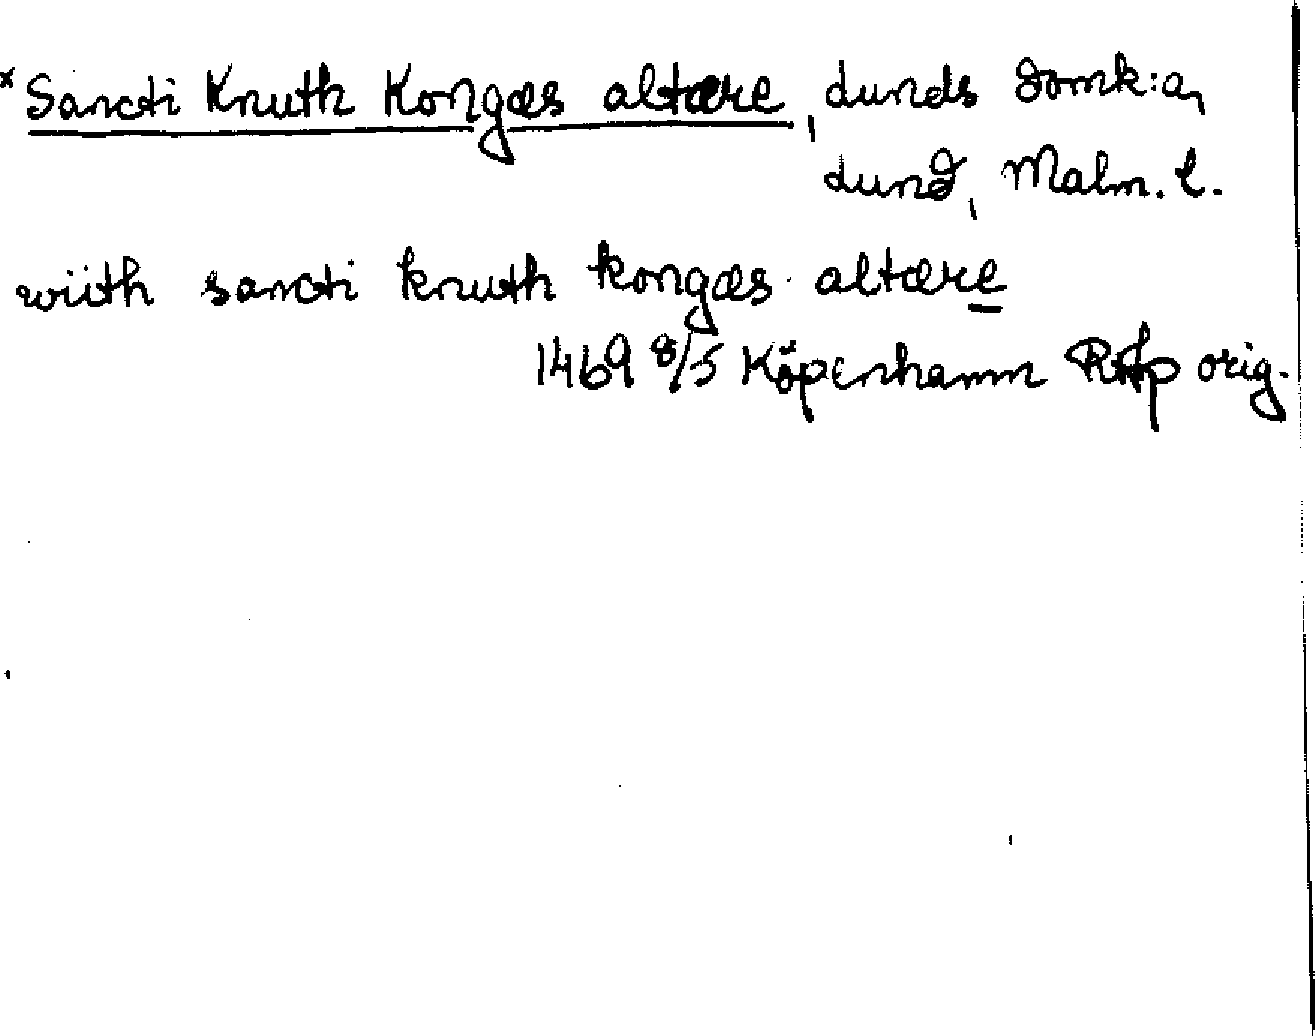 *Sancti Knuth Kongæs altære, Lunds domk:a,
Lund, Malm. l.
wiith sancti knuth kongæs altære
1469 8/5 Köpenhamn RAp orig.